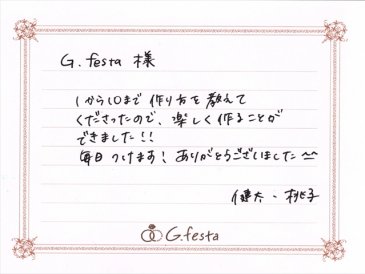 G.festa 様
1から10まで 作り方を教えて
くださったので、楽しく作ることが
できました!!
毎日つけます! ありがとうございました ^^
健太・桃子
G.festa